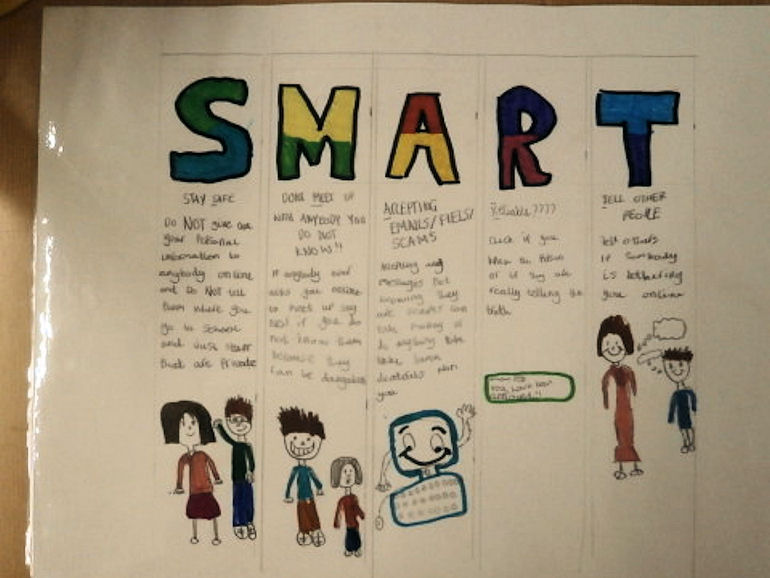 SMART
STAY SAFE
DO NOT give out
your Personal
information to
anybody online
and Do Not tell
them where you
go to School
and Just stuff
that are Private
DONT MEET UP
WITH ANYBODY YOU
DO NOT
KNOW!!
If anybody ever
asks you online
to meet up say
NO! if you do
not know them
because they
can be dangerous
ACCEPTING
EMAILS/FIELS/
SCAMS
Accepting
messages but
knowing they
are can
take of
do anything
you
Reliable????
Check if you
know the
or if they are
really telling the
truth
TELL OTHER
PEOPLE
Tell others
if Somebody
is
you online